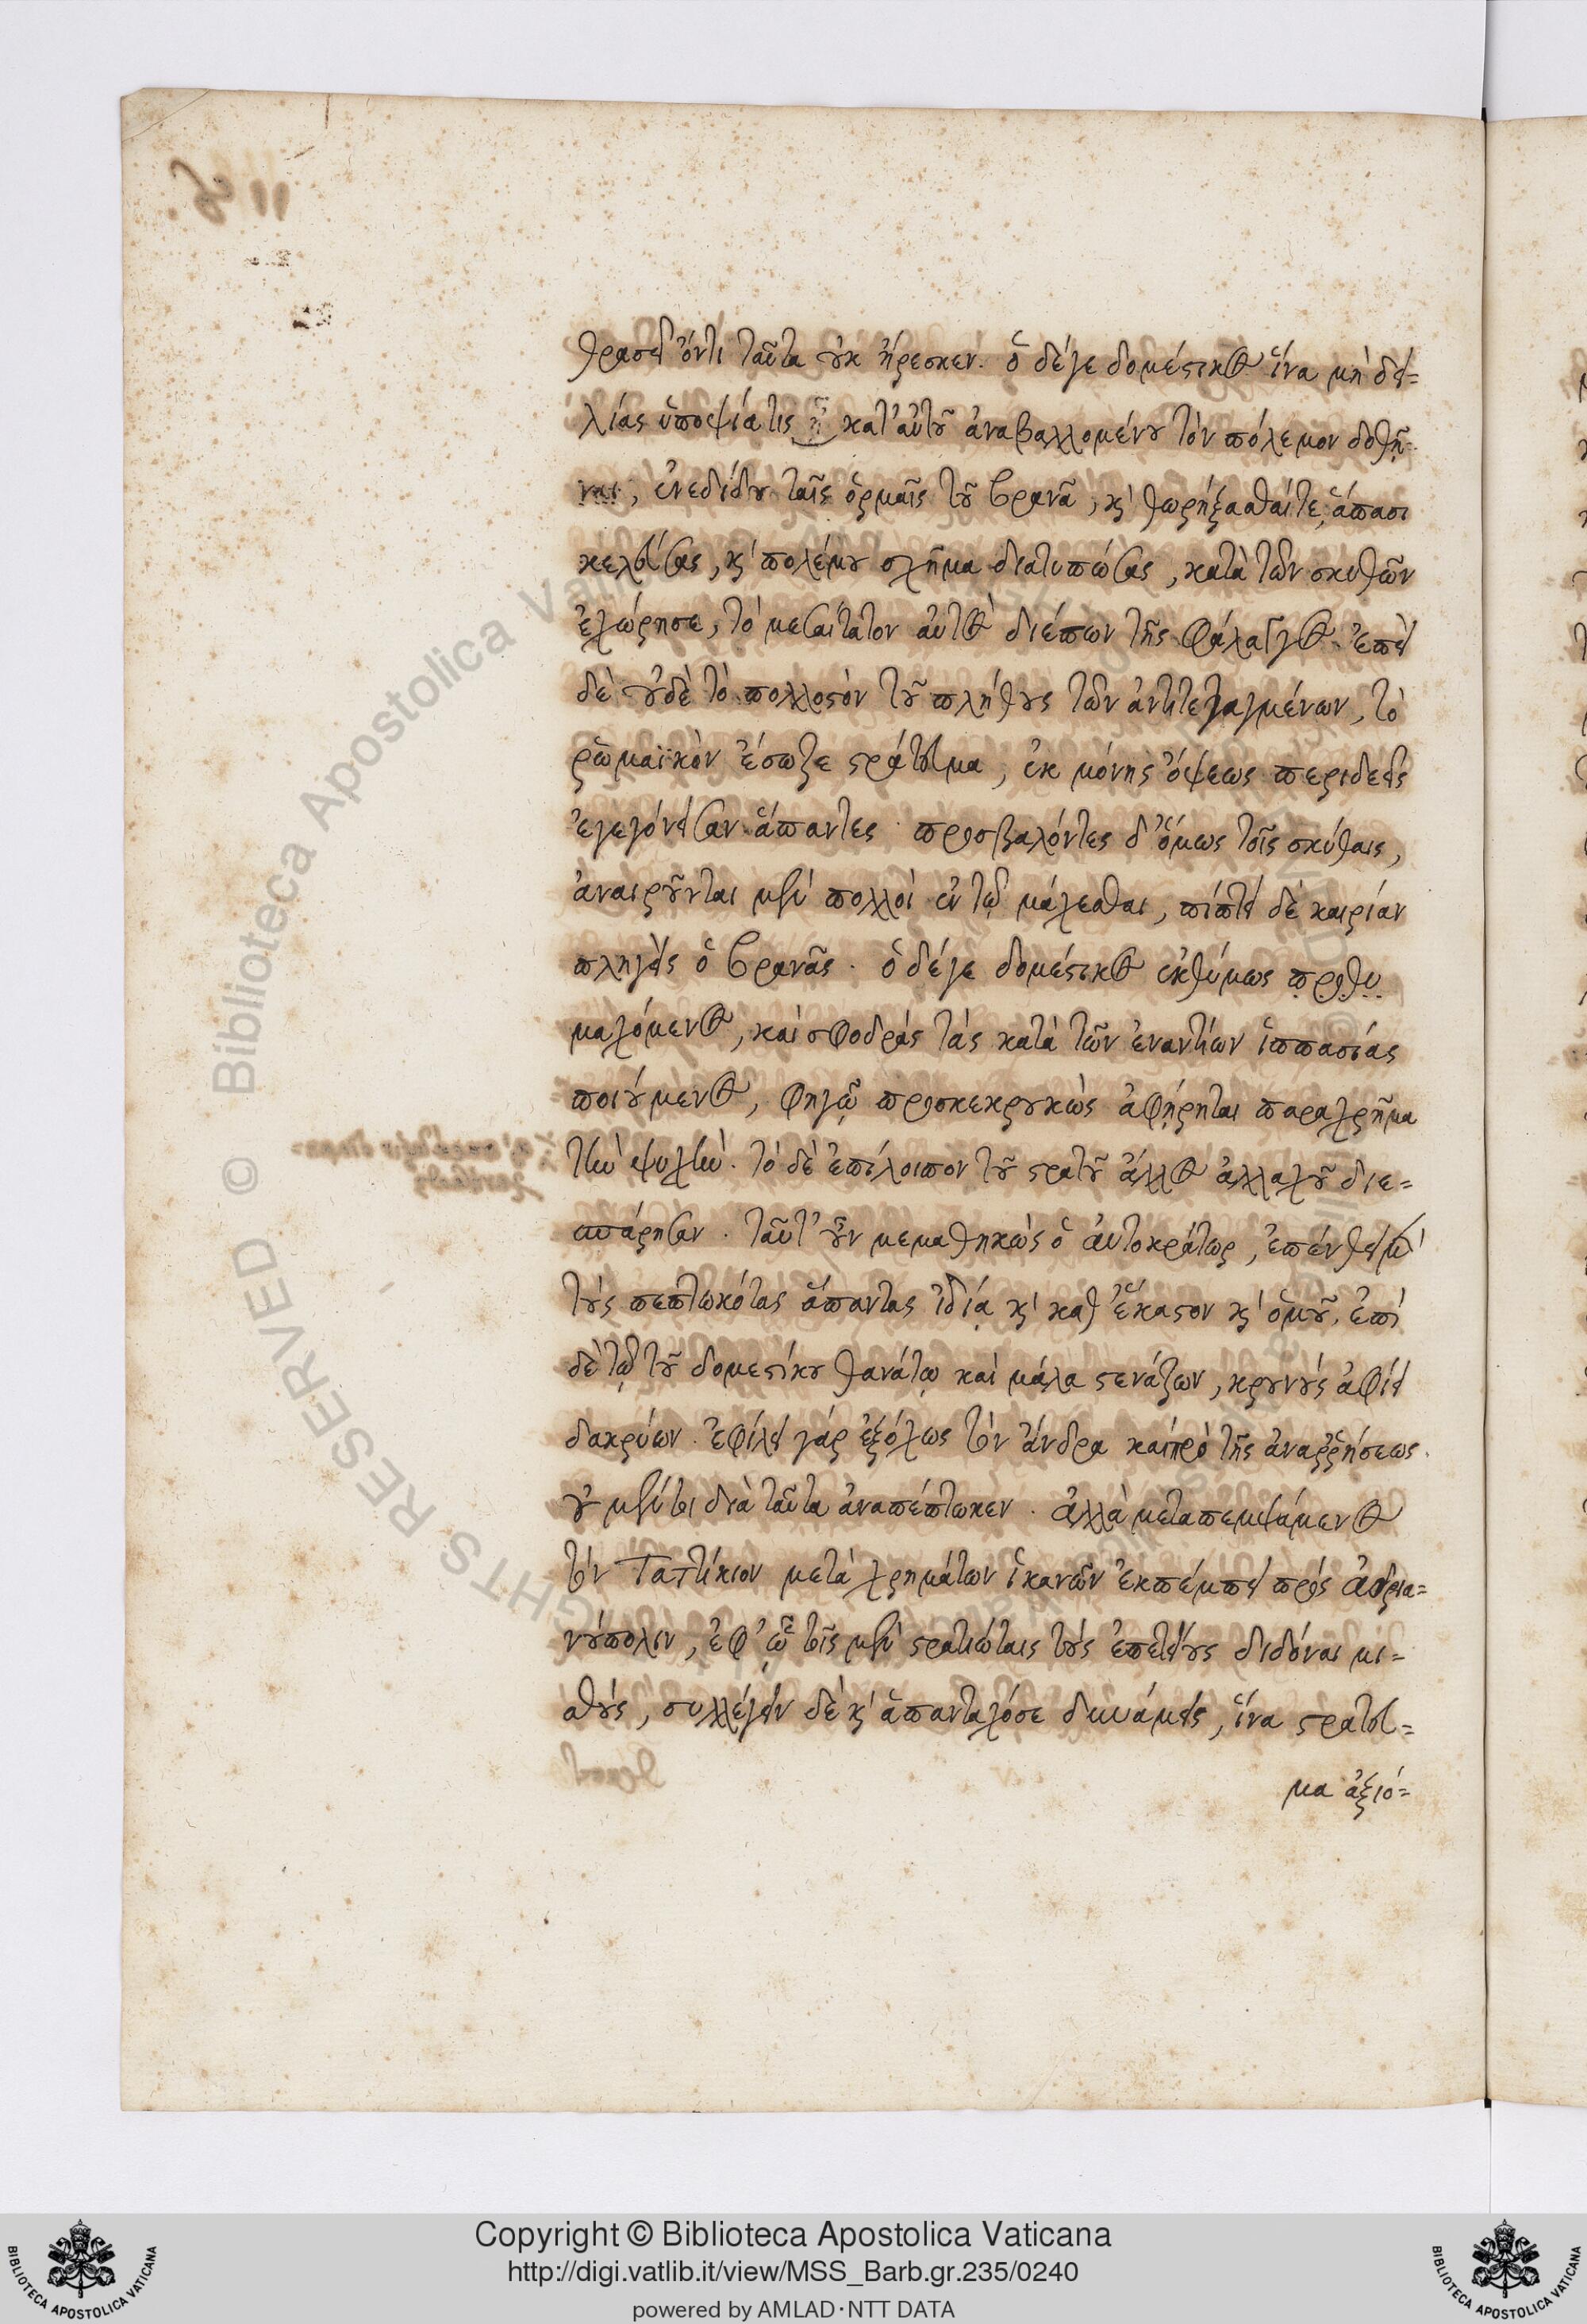 θρασεῖ ὄντι ταῦτα οὐκ ἤρεσκεν. ὁ δέγε δομέστικος ἵνα μὴ δει=
λίας ὑποψία τις ᾖ κατ' αὐτοῦ ἀναβαλλομένου τὸν πόλεμον δοθῇ
ναι, ἐνεδίδου ταῖς ὁρμαῖς τοῦ βρανᾶ, κ' θωρήξασθαίτε ἅπασι
κελεύσας, κ' πολέμου σχῆμα διατυπώσας, κατὰ τῶν σκυθῶν
ἐχώρησε, τὸ μεσαίτατον αὐτὸς διέπων τῆς φάλαγγος. ἐπεὶ
δὲ οὐδὲ τὸ πολλοστὸν τοῦ πλήθους τῶν ἀντιτεταγμένων, τὸ
ῥωμαϊκὸν ἔσωζε στράτευμα, ἐκ μόνης ὄψεως περιδεεῖς
ἐγεγόνεισαν ἅπαντες. προσβαλόντες δ' ὅμως τοῖς σκύθαις,
ἀναιροῦνται μὲν πολλοὶ ἐν τῷ μάχεσθαι, πίπτει δὲ καιρίαν
πληγεὶς ὁ βρανᾶς. ὁ δέγε δομέστικος ἐκθύμως προθυ
μαχόμενος, καὶ σφοδρὰς τὰς κατὰ τῶν ἐναντίων ἱππασίας
ποιούμενος, φηγῷ προσκεκρουκὼς ἀφῄρηται παραχρῆμα
τὴν ψυχήν. τὸ δὲ ἐπίλοιπον τοῦ στρατοῦ ἄλλος ἀλλαχοῦ διε=
σπάρησαν. ταῦτ' οὖν μεμαθηκὼς ὁ αὐτοκράτωρ, ἐπένθει μὲν
τοὺς πεπτωκότας ἅπαντας ἰδίᾳ κ' καθ' ἕκαστον κ' ὁμοῦ. ἐπὶ
δὲ τῷ τοῦ δομεστίκου θανάτῳ καὶ μάλα στενάζων, κρουνοὺς ἀφίει
δακρύων. ἐφίλει γὰρ ἐξόχως τὸν ἄνδρα καὶ πρὸ τῆς ἀναῤῥήσεως.
οὐ μέντοι διὰ ταῦτα ἀναπέπτωκεν. ἀλλὰ μεταπεμψάμενος
τὸν Τατίκιον μετὰ χρημάτων ἱκανῶν ἐκπέμπει πρὸς ἀδρια=
νούπολιν, ἐφ' ᾧ τοῖς μὲν στρατιώταις τοὺς ἐπετείους διδόναι μι=
σθούς, συλλέγειν δὲ κ' ἁπανταχόσε δυνάμεις, ἵνα στράτευ=
μα ἀξιό=
Copyright © Biblioteca Apostolica Vaticana
http://digi.vatlib.it/view/MSS_Barb.gr.235/0240
powered by AMLAD·NTT DATA